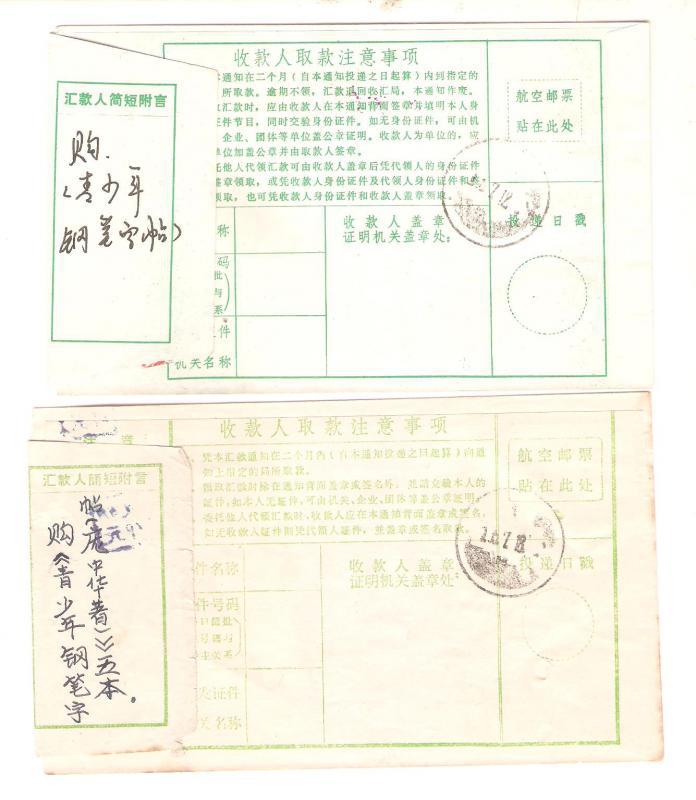 收款人取款注意事项
本通知在二个月(自本通知投递之日起算)内到指定的
所取款。逾期不领,汇款退回收汇局,本通知作废。
取汇款时,应由收款人在本通知背面签章并填明本人身
证件节目,同时交验身份证件。如无身份证件,可由机
、企业、团体等单位盖公章证明。收款人为单位的,应
单位加盖公章并由取款人签章。
托他人代领汇款可由收款人盖章后凭代领人的身份证件
盖章领取,或凭收款人身份证件及代领人身份证件和
领取,也可凭收款人身份证件和收款人盖章领取
汇款人简短附言
购
《青少年
钢笔字帖》
航空邮票
贴在此处
称
码
批
与
系
件
机关名称
收款人盖章
证明机关盖章处:
投递日戳
收款人取款注意事项
注意
凭本汇款通知在二个月内(自本通知投递之日起算)向通
知上指定的局所取款。
领取汇款时除在通知背面盖章或签名外,并请交验本人的
证件,如本人无证件,可由机关、企业、团体等盖公章证明。
委托他人代领汇款时,收款人应在本通知背面盖章或签名,
如凭收款人证件则凭代领人证件,并盖章或签名取款。
汇款人简短附言
购《青少年钢笔字
帖(庞中华著)》五本。
航空邮票
贴在此处
件名称
件号码
日期批
号码与
主关系
发证件
关名称
收款人盖章
证明机关盖章处:
投递日戳